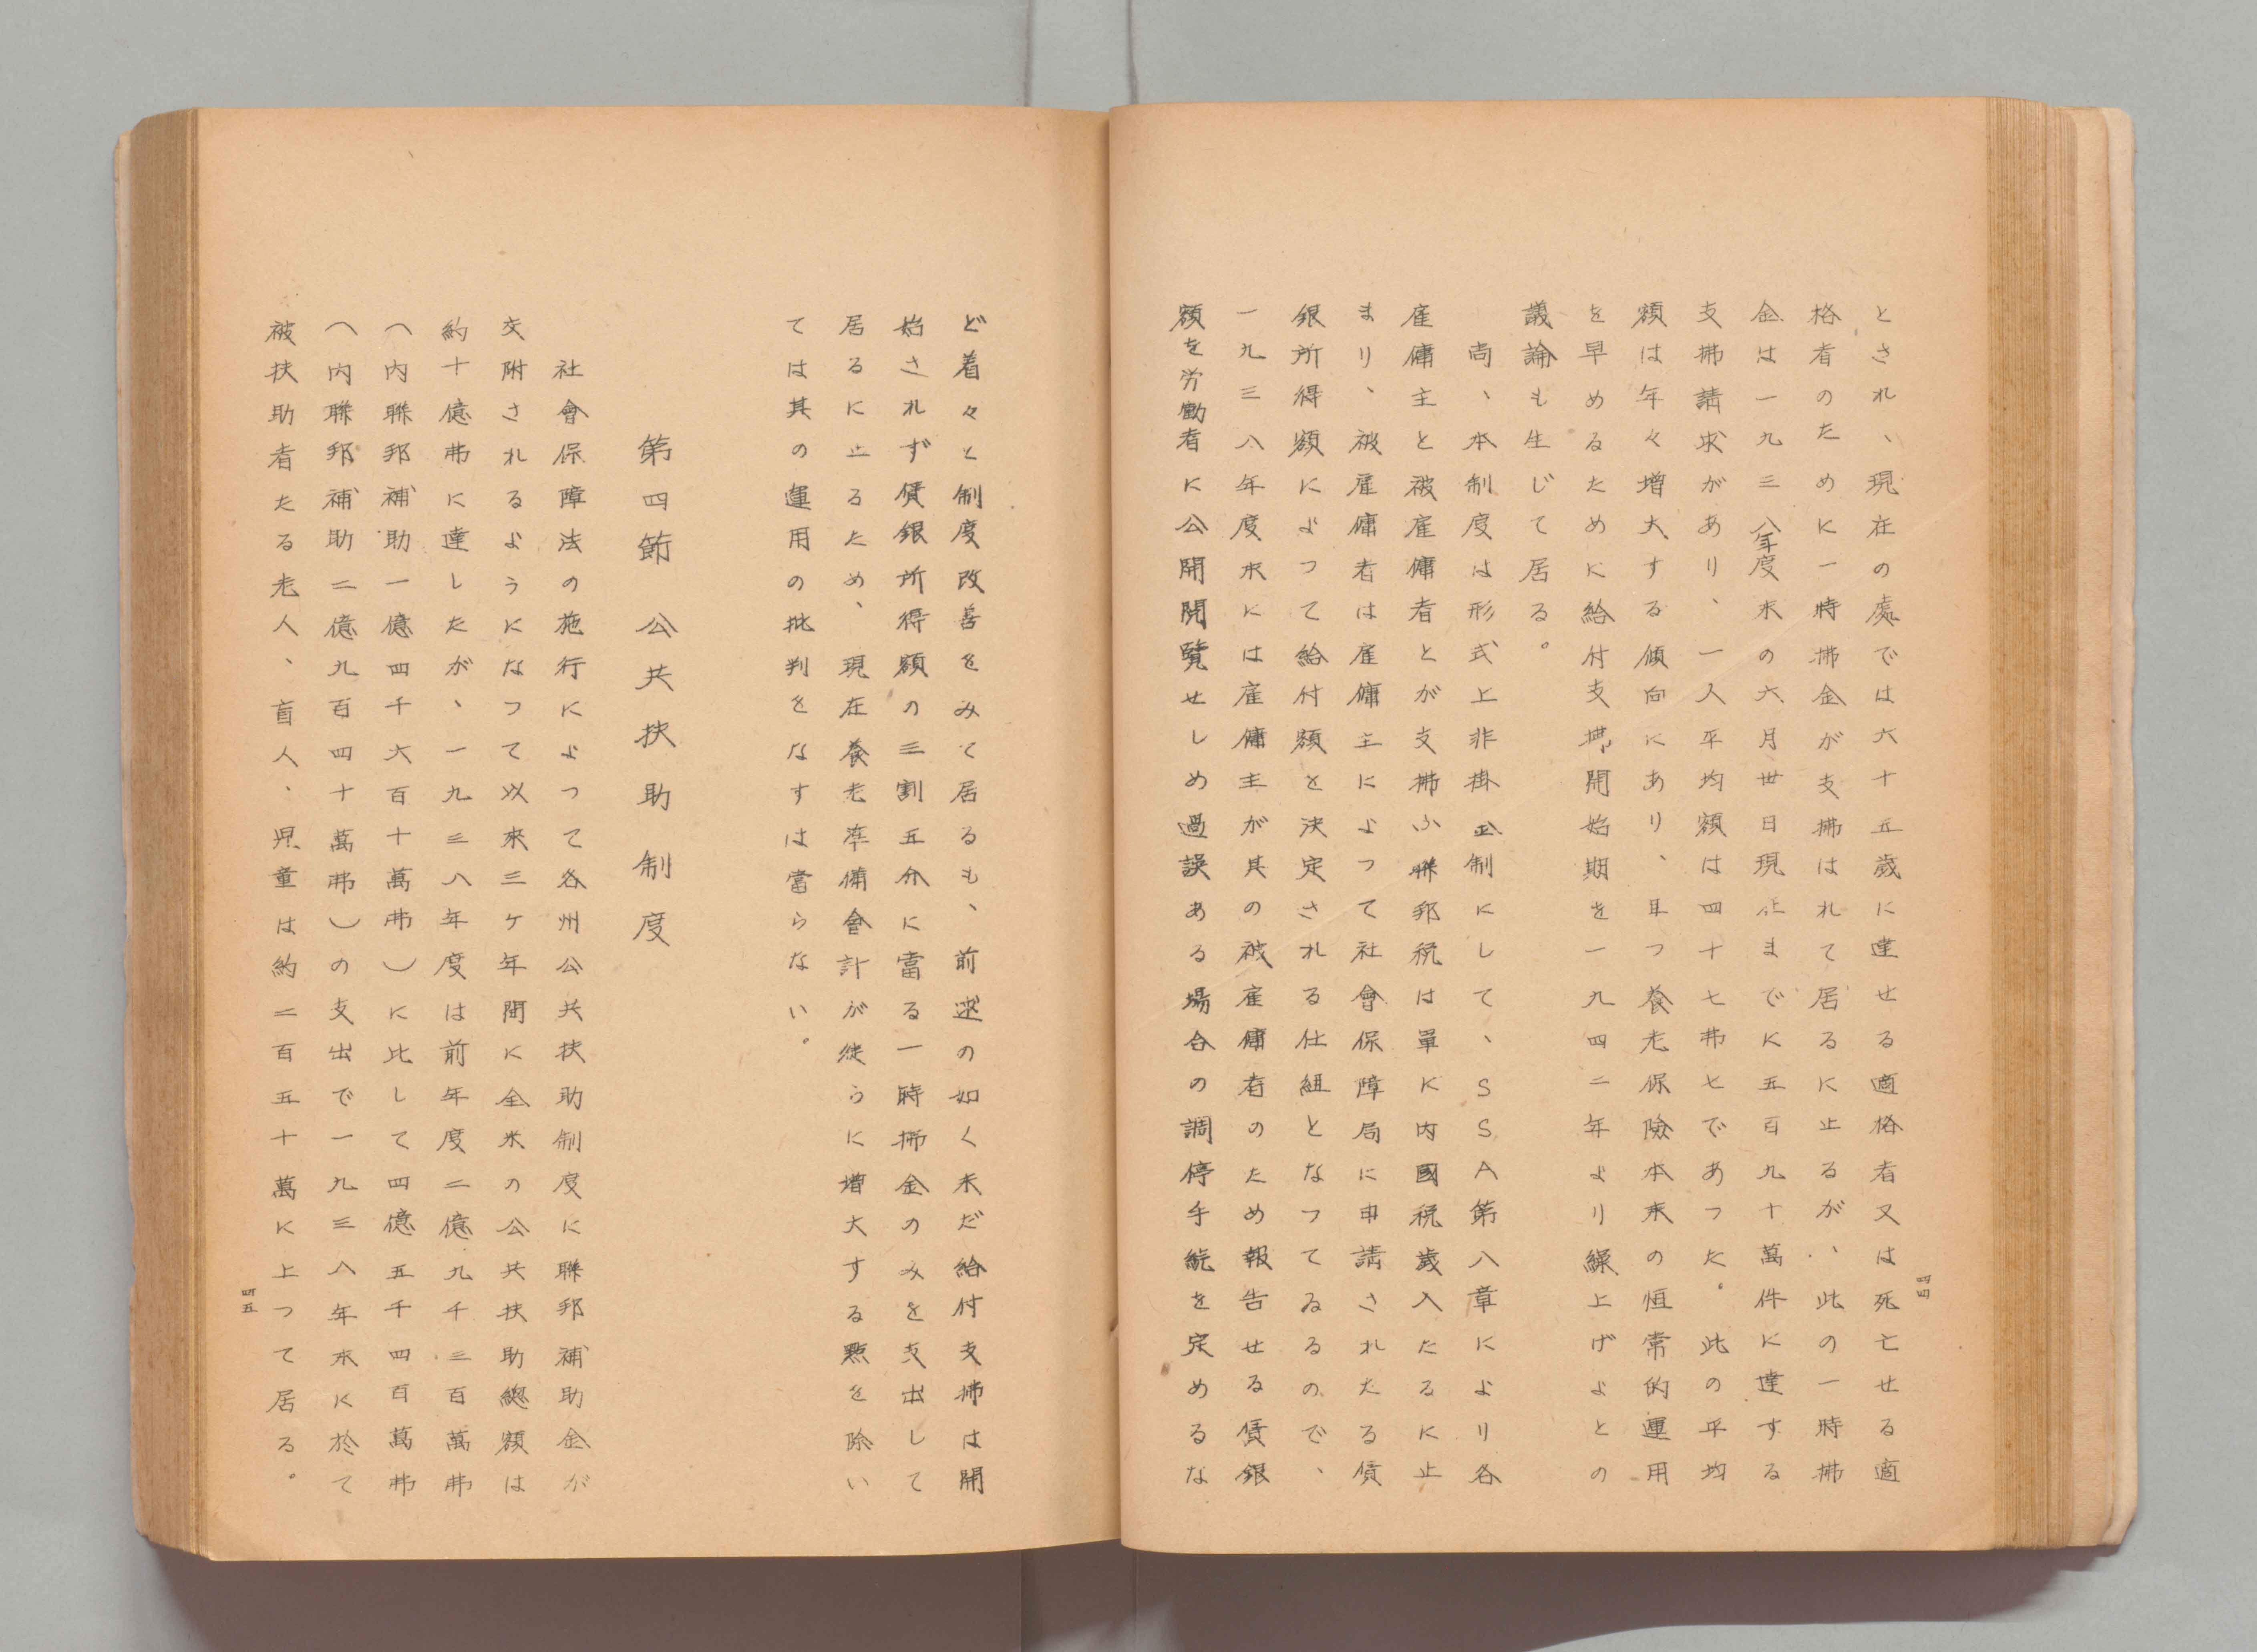 とされ、現在の處では六十五歲に達せる適格者又は死亡せる適
格者のために一時拂金が支拂はれて居るに止るが、此の一時拂
金は一九三八年度末の六月卅日現在までに五百九十萬件に達する
支拂請求があり、一人平均額は四十七弗七であった。此の平均
額は年々増大する傾向にあり、且つ養老保險本來の恒常的運用
を早めるために給付支拂開始期を一九四二年より繰上げよとの
議論も生じて居る。
尚、本制度は形式上非掛金制にして、SSA第八章により各
雇傭主と被雇傭者とが支拂ふ聯邦税は單に内國税歲入たるに止
まり、被雇傭者は雇傭主によって社會保障局に申請されたる賃
銀所得額によって給付額を決定される仕組となつてゐるので、
一九三八年度末には雇傭主が其の被雇傭者のため報告せる賃銀
額を労働者に公開閲覽せしめ過誤ある場合の調停手続を定めるな
四四
ど着々と制度改善をみて居るも、前述の如く未だ給付支拂は開
始されず賃銀所得額の三割五分に當る一時拂金のみを支出して
居るに止るため、現在養老準備會計が徒らに増大する點を除い
ては其の運用の批判をなすは當らない。
第四節 公共扶助制度
社會保障法の施行によつて各州公共扶助制度に聯邦補助金が
交附されるようになつて以來三ケ年間に全米の公共扶助總額は
約十億弗に達したが、一九三八年度は前年度二億九千三百萬弗
（内聯邦補助一億四千六百十萬弗）に比して四億五千四百萬弗
（内聯邦補助二億九百四十萬弗）の支出で一九三八年末に於て
被扶助者たる老人、盲人、児童は約二百五十萬に上つて居る。
四五